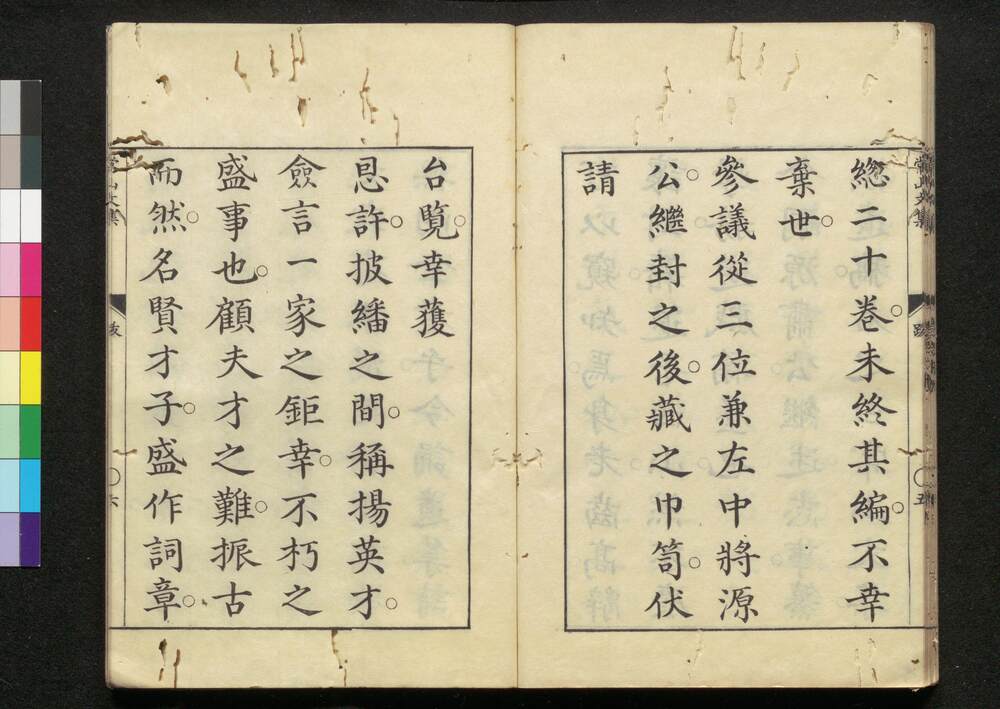 總二十卷。未終其編。不幸
棄世。
參議從三位兼左中將源
公。繼封之後。藏之巾笥。伏
請
台覽。幸獲
恩許。披繙之間。稱揚英才。
僉言一家之鉅幸。不朽之
盛事也。顧夫才之難。振古
而然。名賢才子。盛作詞章。
常山文集
跋
五
六